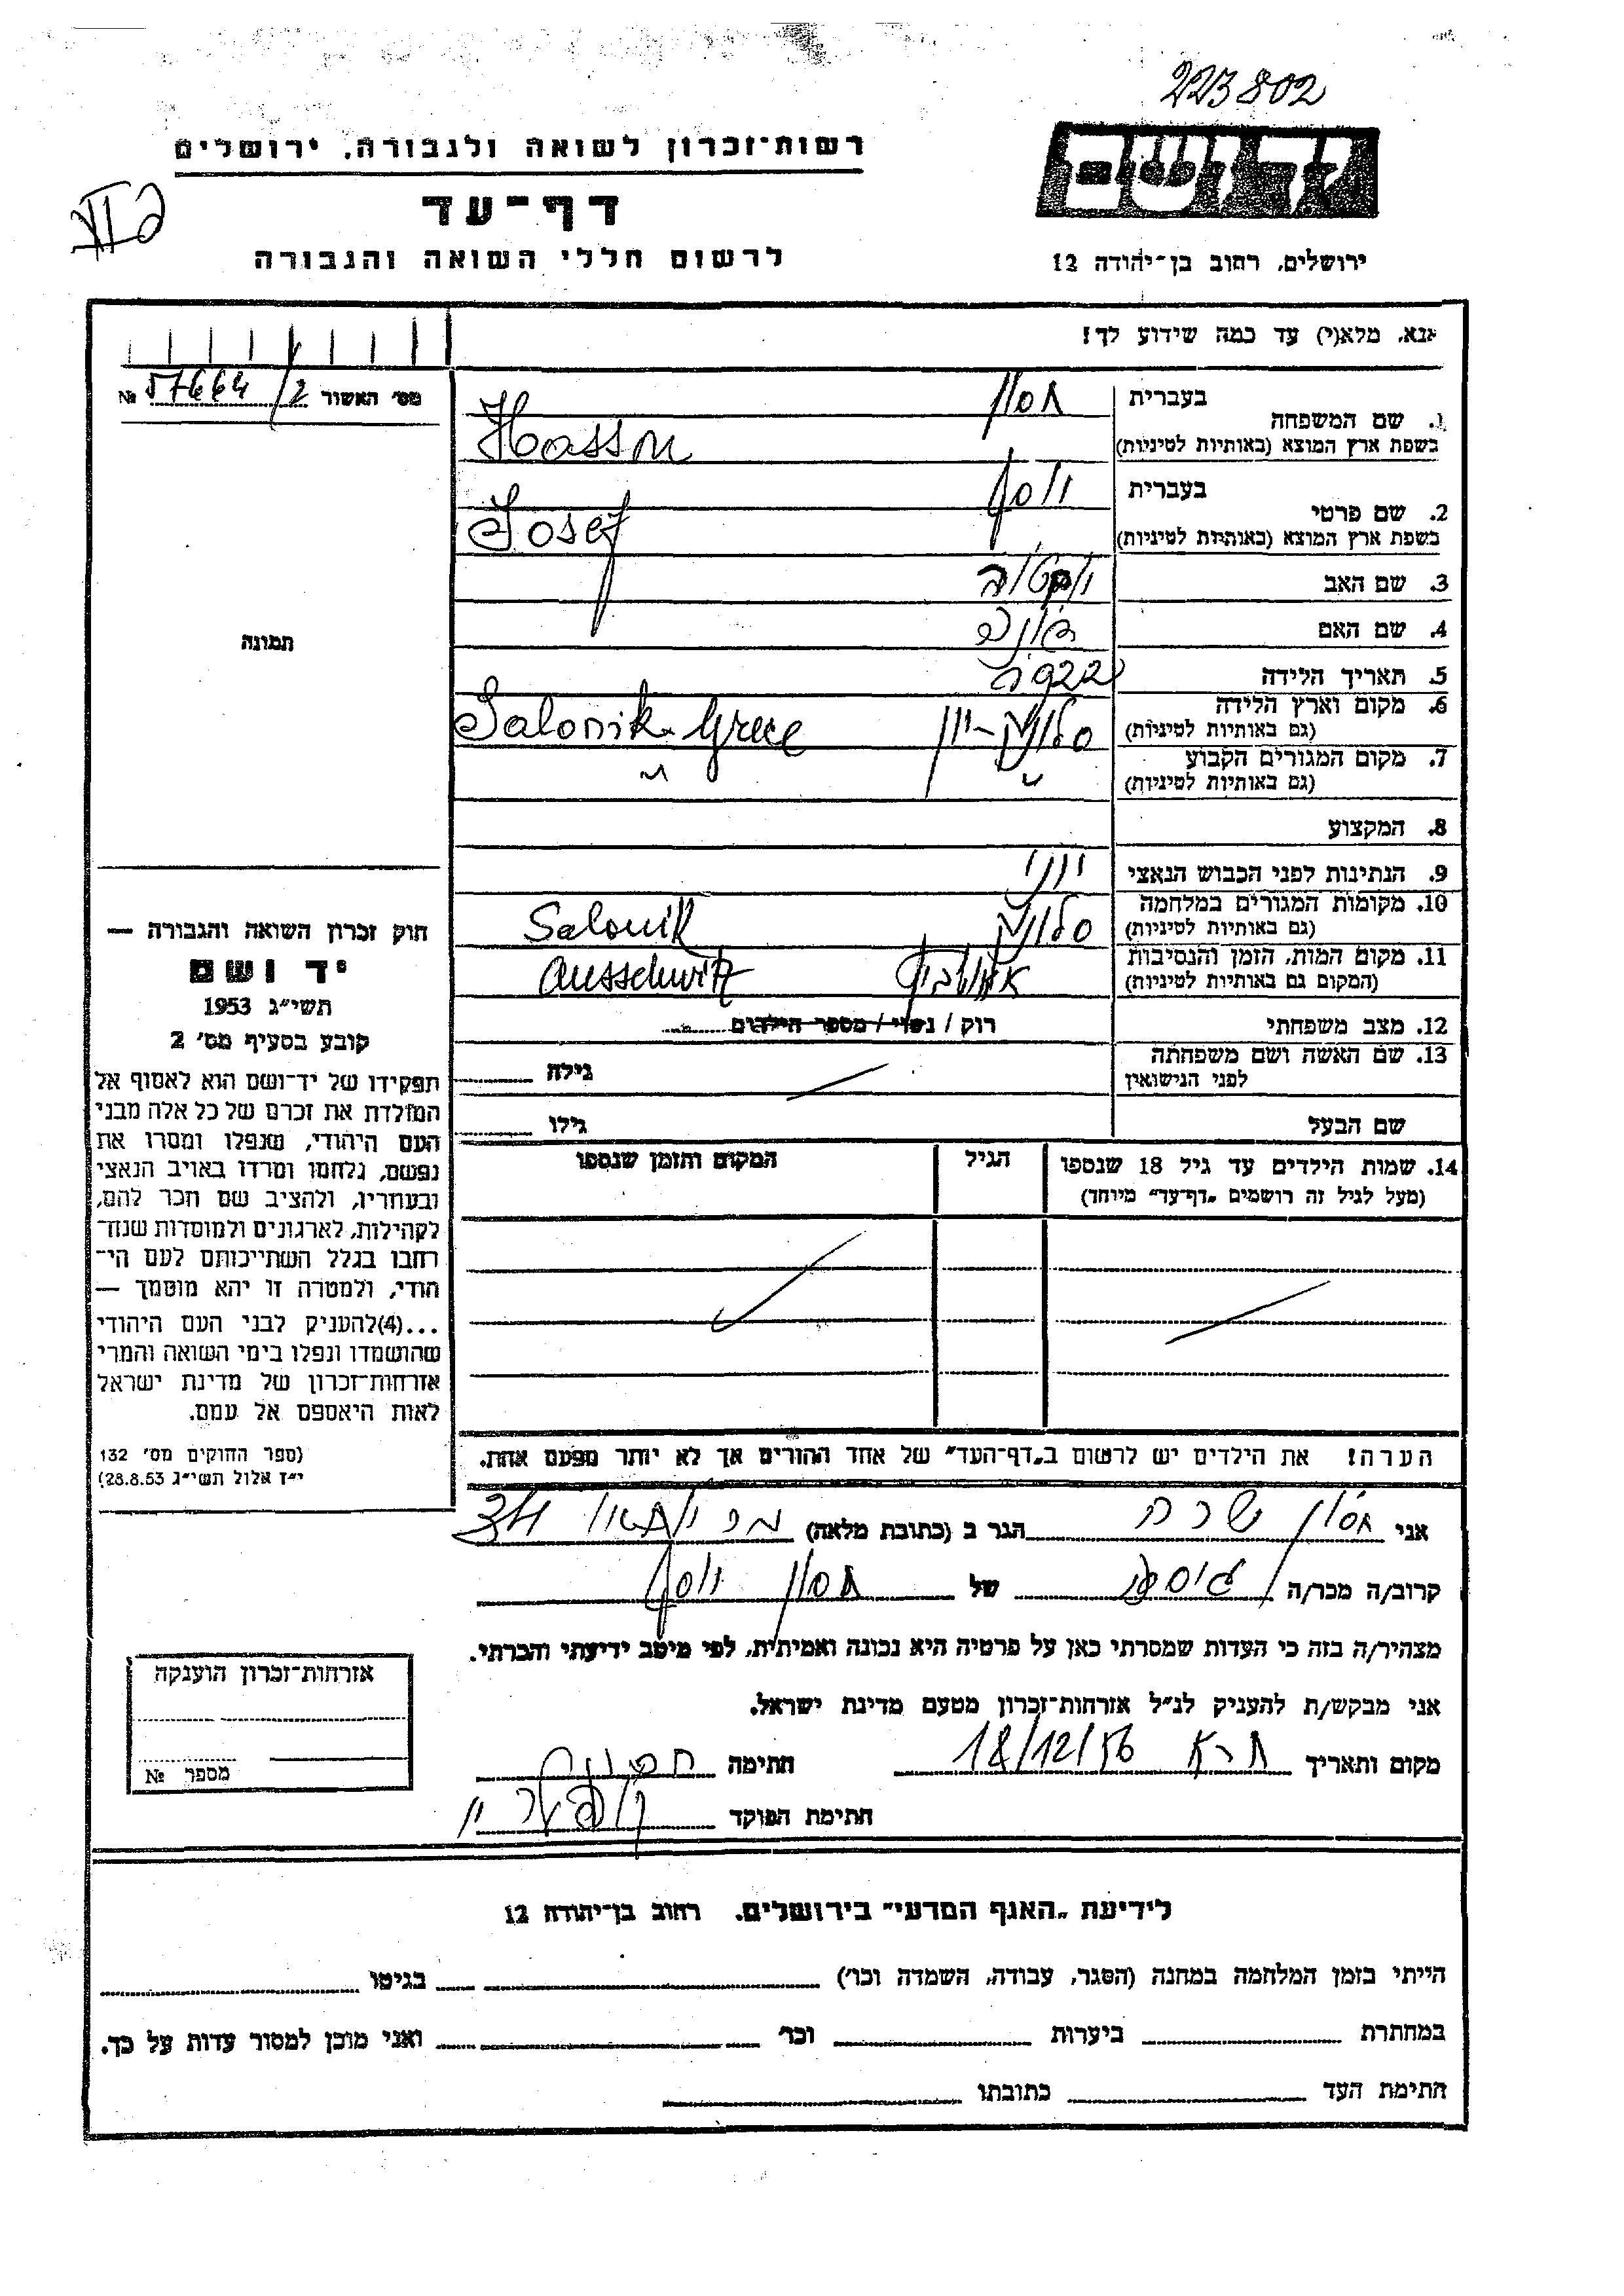 223802
רשות־זכרון לשואה ולגבורה, ירושלים
דף־עד
לרשום חללי השואה והגבורה
ירושלים, רחוב בן־יהודה 12
אנא, מלא(י) עד כמה שידוע לך!
מס׳ האשור 57664/2 №
1. שם המשפחה
בעברית חסון
בשפת ארץ המוצא (באותיות לטיניות) Hassn
2. שם פרטי
בעברית יוסף
בשפת ארץ המוצא (באותיות לטיניות) Josef
3. שם האב
4. שם האם
5. תאריך הלידה 1922
6. מקום וארץ הלידה
(גם באותיות לטיניות) סלוניק–יון Salonik-Grece
7. מקום המגורים הקבוע
(גם באותיות לטיניות) " "
8. המקצוע
9. הנתינות לפני הכבוש הנאצי יווני
10. מקומות המגורים במלחמה
(גם באותיות לטיניות) סלוניק Salonik
11. מקום המות, הזמן והנסיבות
(המקום גם באותיות לטיניות) אושוויץ Ausschwitz
12. מצב משפחתי רוק / נשוי / מספר הילדים
13. שם האשה ושם משפחתה
לפני הנישואין גילה
שם הבעל גילו
14. שמות הילדים עד גיל 18 שנספו
(מעל לגיל זה רושמים „דף־עד״ מיוחד)
הגיל
המקום והזמן שנספו
הערה! את הילדים יש לרשום ב„דף־העד״ של אחד ההורים אך לא יותר מפעם אחת.
תמונה
חוק זכרון השואה והגבורה —
יד ושם
תשי״ג 1953
קובע בסעיף מס׳ 2
תפקידו של יד־ושם הוא לאסוף אל
המולדת את זכרם של כל אלה מבני
העם היהודי, שנפלו ומסרו את
נפשם, נלחמו ומרדו באויב הנאצי
ובעוזריו, ולהציב שם וזכר להם,
לקהילות, לארגונים ולמוסדות שנח־
רבו בגלל השתייכותם לעם הי־
הודי, ולמטרה זו יהא מוסמך —
...(4)להעניק לבני העם היהודי
שהושמדו ונפלו בימי השואה והמרי
אזרחות־זכרון של מדינת ישראל
לאות היאספם אל עמם.
(ספר החוקים מס׳ 132
י״ז אלול תשי״ג 28.8.53)
אני חסון שרה הגר ב (כתובת מלאה) 34
קרוב/ה מכר/ה גיסה של חסון יוסף
מצהיר/ה בזה כי העדות שמסרתי כאן על פרטיה היא נכונה ואמיתית, לפי מיטב ידיעתי והכרתי.
אני מבקש/ת להעניק לנ״ל אזרחות־זכרון מטעם מדינת ישראל.
מקום ותאריך ת״א 18/12/56 חתימה
חתימת הפוקד
אזרחות־זכרון הוענקה
מספר №
לידיעת „האגף המדעי״ בירושלים, רחוב בן־יהודה 12
הייתי בזמן המלחמה במחנה (הסגר, עבודה, השמדה וכו׳) בגיטו
במחתרת ביערות וכו׳ ואני מוכן למסור עדות על כך.
חתימת העד כתובתו